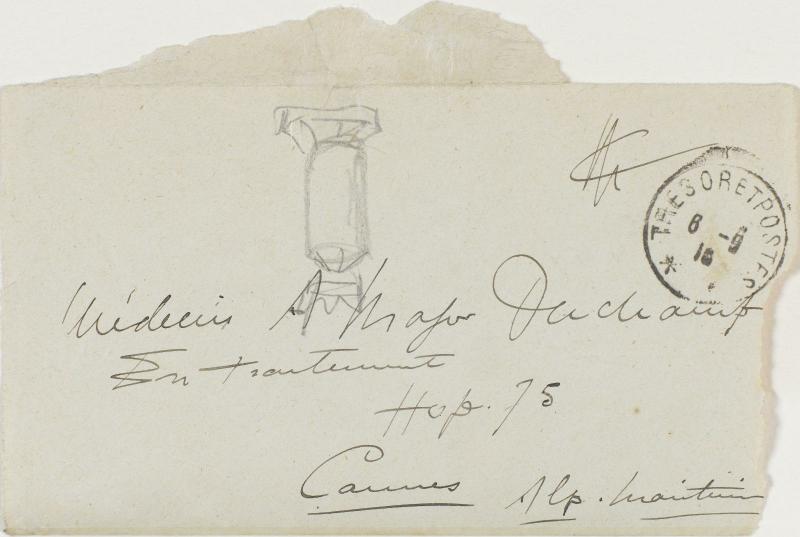 TRESOR ET POSTES
8 -9
16
Médecin A Major Duchamp
En traitement
Hop. 75
Cannes Alp. Maritim